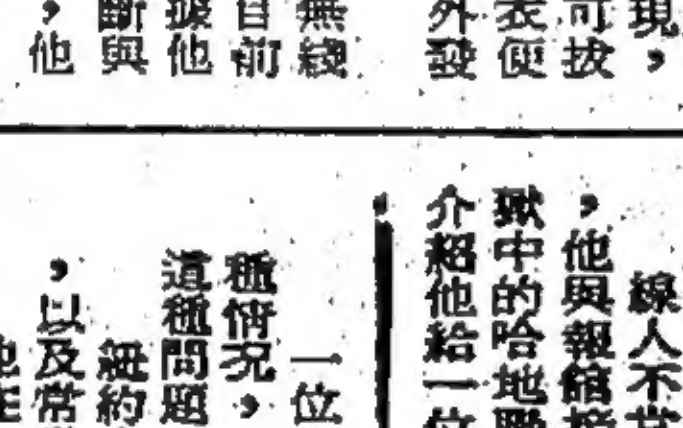 現，
可拔
表便
外發
無綫
目前
據他
斷與
，他
線人不
，他與報館
獄中的哈地
介紹他給一位
一位
種情況，
這種問題
紐約
，以及常